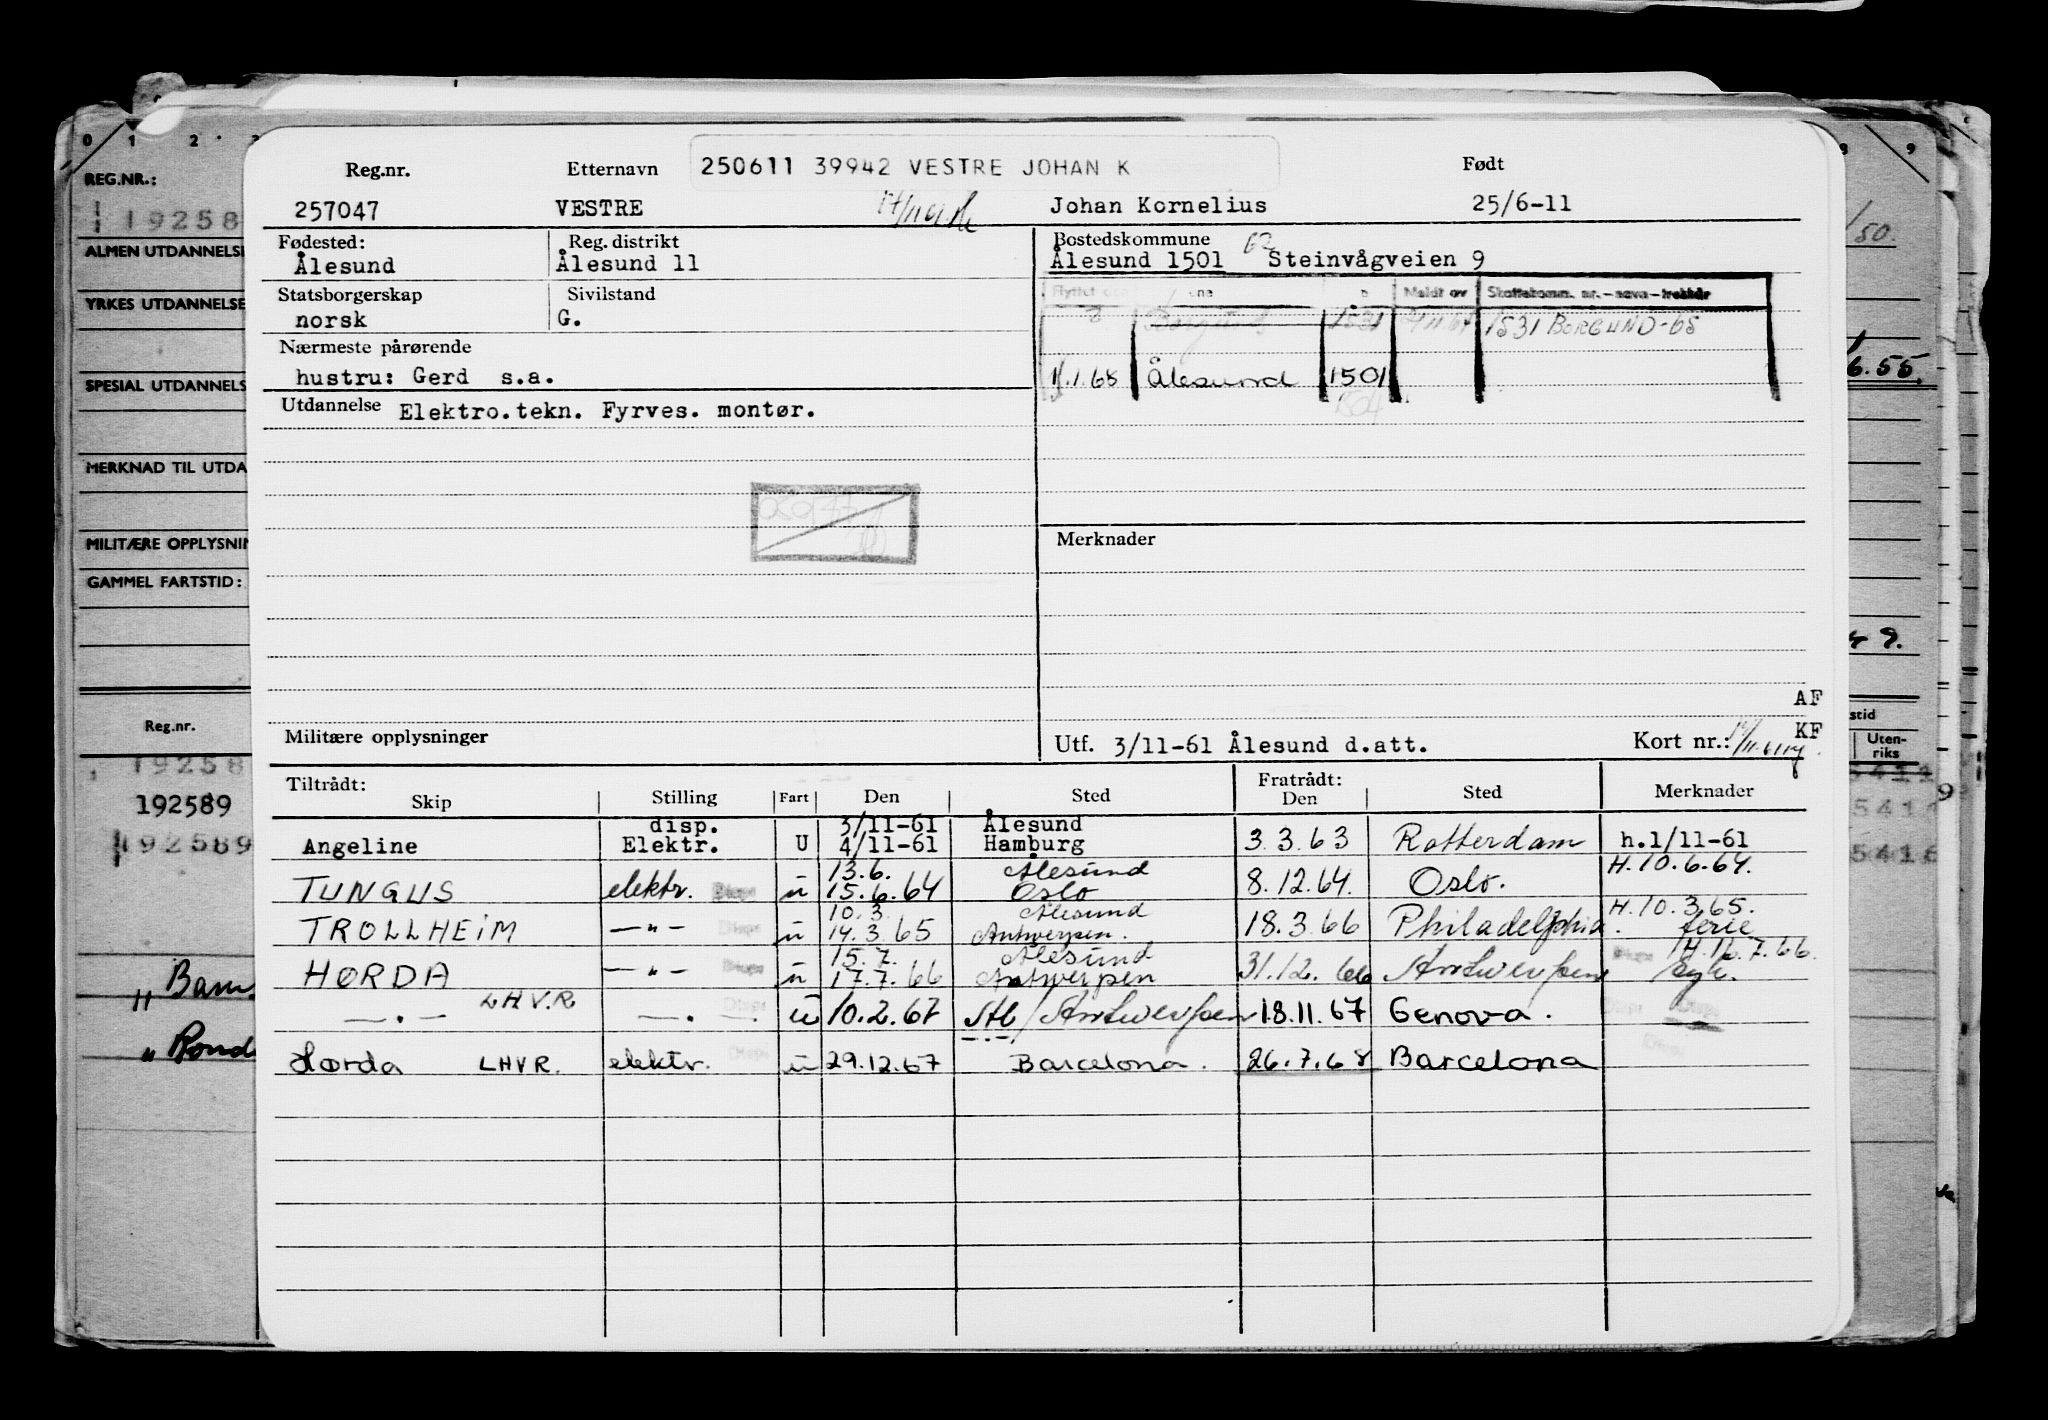 0 1 2
REG.NR.:
192589
ALMEN UTDANNELSE
YRKES UTDANNELSE
SPESIAL UTDANNELS
MERKNAD TIL UTDA
MILITÆRE OPPLYSNIN
GAMMEL FARTSTID:
Reg.nr.
19258
192589
192589
" Bam
" Rond
Reg.nr. Etternavn 250611 39942 VESTRE JOHAN K Født
257047 VESTRE Johan Kornelius 25/6-11
Fødested: Reg. distrikt Bostedskommune
Ålesund Ålesund 11 Ålesund 1501 Steinvågveien 9
Statsborgerskap Sivilstand
norsk G.
Meldt av Skattekomm. nr. - navn - trekkår
1531 1531 BORGUND-65
Nærmeste pårørende
hustru: Gerd s.a.
1/.1.68 Ålesund 1501
1504
Utdannelse Elektro.tekn. Fyrves. montør.
Merknader
AF
KF
Militære opplysninger
Utf. 3/11-61 Ålesund d.att. Kort nr.:
Tiltrådt: Fratrådt:
Skip Stilling Fart Den Sted Den Sted Merknader
disp. 3/11-61 Ålesund
Angeline Elektr. U 4/11-61 Hamburg 3.3.63 Rotterdam h.1/11-61
13.6. Ålesund H.10.6.64.
TUNGUS elektr. u 15.6.64 Oslo 8.12.64. Oslo.
10.3. Ålesund H.10.3.65.
TROLLHEIM —"— u 14.3.65 Antwerpen. 18.3.66 Philadelphia. ferie
15.7. Ålesund H.16.7.66.
HØRDA —"— u 17.7.66 Antwerpen 31.12.66 Antwerpen syk.
—"— LHVR —"— u 10.2.67 Stb/Antwerpen 18.11.67 Genova.
Hørda LHVR. elektr. u 29.12.67 Barcelona. 26.7.68 Barcelona
/50.
6.55.
9.
stid
Uten-
riks
5411
5416
5416